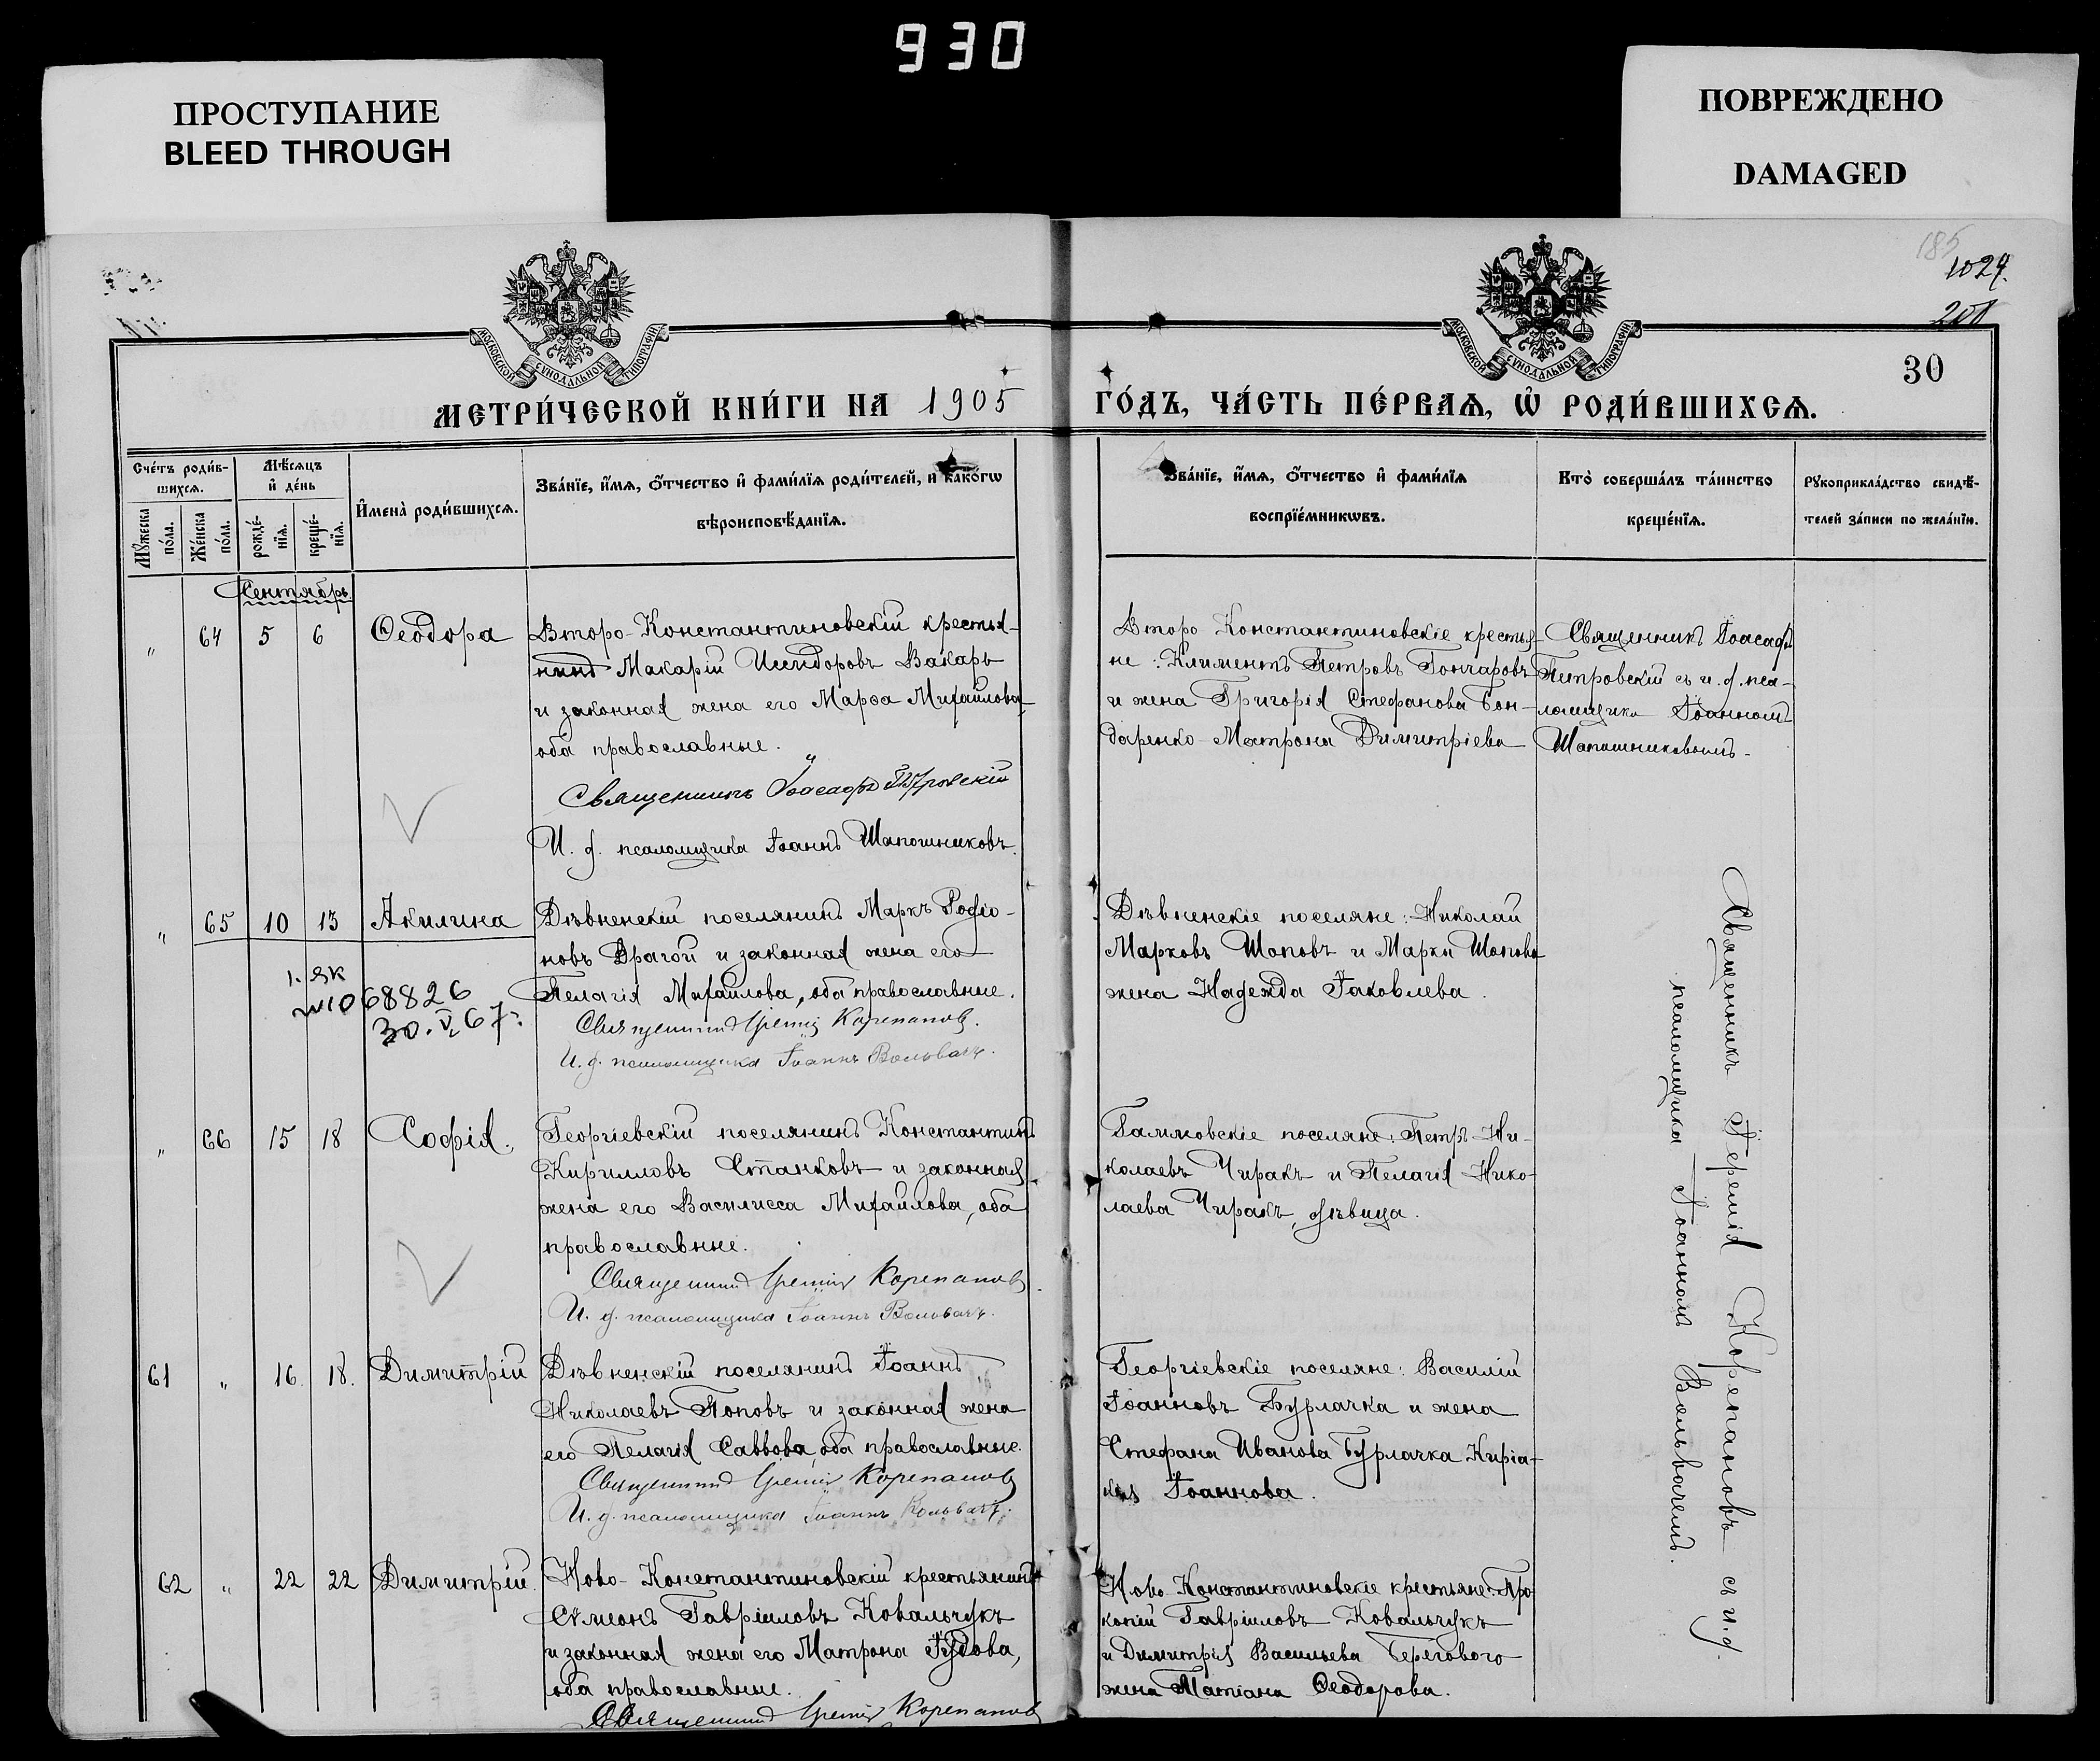 930
ПРОСТУПАНИЕ
BLEED THROUGH
ПОВРЕЖДЕНО
DAMAGED
185
1024.
30
МОСКОВСКОЙ СѴНОДАЛЬНОЙ ТИПОГРАФІИ
МОСКОВСКОЙ СѴНОДАЛЬНОЙ ТИПОГРАФІИ
МЕТРИ́ЧЕСКОЙ КНИ́ГИ НА 1905 ГО́ДЪ, ЧА́СТЬ ПЕ́РВАѦ, Ѡ҆ РОДИ́ВШИХСѦ.
Сче́тъ роди́в-
шихсѧ.
Мѣ́сѧцъ
и҆ де́нь
Мꙋ́жеска
по́ла.
Же́нска
по́ла.
рожде́-
нїѧ.
креще́-
нїѧ.
И҆мена̀ роди́вшихсѧ.
Зва́нїе, и҆́мѧ, ѻ҆́тчество и҆ фами́лїѧ роди́телей, и҆ како́гѡ
вѣроисповѣ́данїѧ.
Зва́нїе, и҆́мѧ, ѻ҆́тчество и҆ фами́лїѧ
воспрїе́мникѡвъ.
Кто̀ соверша́лъ та́инство
креще́нїѧ.
Рꙋкоприкла́дство свидѣ́-
телей за́писи по жела́нїю.
Сентябрь.
" 64 5 6 Ѳеодора
Второ-Константиновскій крестья-
нинъ Макарій Исидоровъ Вакарь
и законная жена его Марѳа Михайлова
оба православные.
Священникъ Іоасафъ Петровскій
И. д. псаломщика Іоаннъ Шапошниковъ.
Второ Константиновскіе крестья-
не: Климентъ Петровъ Гончаровъ
и жена Григорія Стефанова Бон-
даренко - Матрона Димитріева
Священникъ Іоасафъ
Петровскій съ и. д. пса-
ломщика Іоанномъ
Шапошниковымъ.
" 65 10 13 Акилина
1. ЯК
№1068826
30.V.67г.
Дѣвненскій поселянинъ Маркъ Родіо-
новъ Драгой и законная жена его
Пелагія Михайлова, оба православные.
Священникъ Іеремія Корепановъ.
И. д. псаломщика Іоаннъ Вольвачъ.
Дѣвненскіе поселяне: Николай
Марковъ Шоповъ и Марки Шопова
жена Надежда Іаковлева.
" 66 15 18 Софія.
Георгіевскій поселянинъ Константинъ
Кирилловъ Станковъ и законная
жена его Василисса Михайлова, оба
православные.
Священникъ Іеремія Корепановъ.
И. д. псаломщика Іоаннъ Вольвачъ.
поселяне: Петръ Ни-
колаевъ Чиракъ и Пелагія Нико-
лаева Чиракъ, дѣвица.
61 " 16. 18. Димитрій
Дѣвненскій поселянинъ Іоаннъ
Николаевъ Поповъ и законная жена
его Пелагія Саввова, оба православные.
Священникъ Іеремія Корепановъ
И. д. псаломщика Іоаннъ Вольвачъ.
Георгіевскіе поселяне: Василій
Іоанновъ Бурлачка и жена
Стефана Иванова Бурлачка Киріа-
кія Іоаннова.
62 " 22 22 Димитрій.
Ново-Константиновскій крестьянинъ
Сѵмеонъ Гавріиловъ Ковальчукъ
и законная жена его Матрона
оба православные.
Священникъ Іеремія Корепановъ
Ново-Константиновскіе крестьяне: Про-
копій Гавріиловъ Ковальчукъ
и Димитрія Васильева Берегового
жена Татіана Ѳеодорова.
Священникъ Іеремія Корепановъ съ и. д.
псаломщика Іоанномъ Вольвачемъ.